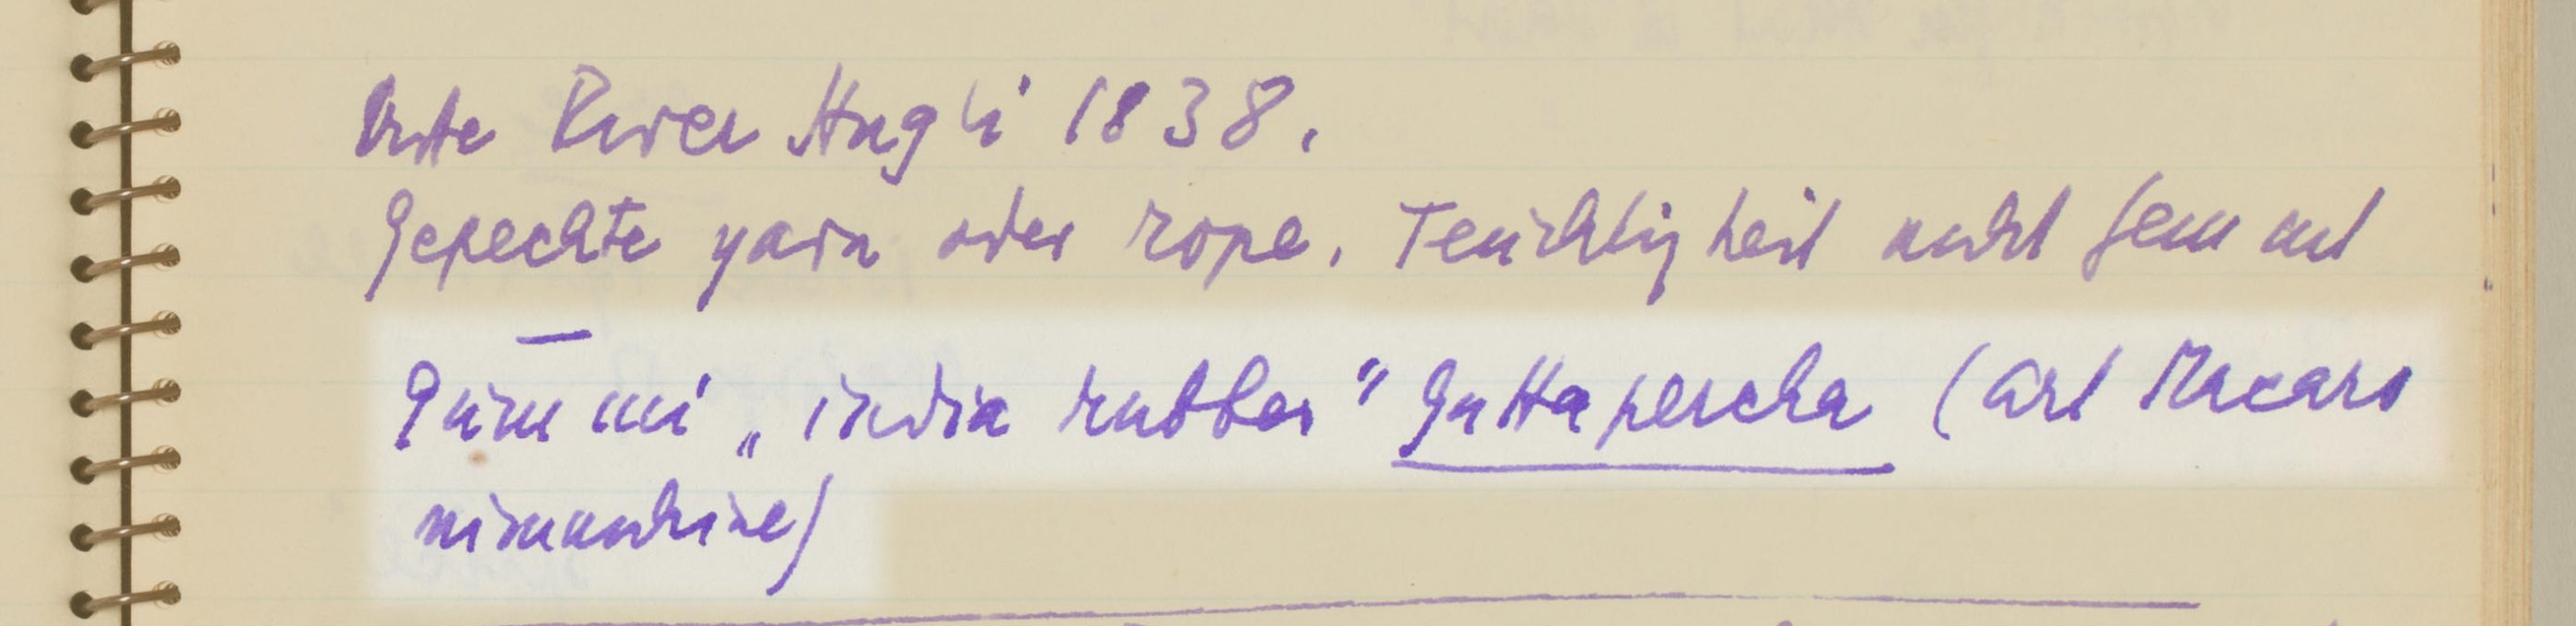 Erste River Hugli 1838.
Gepechte yarn oder rope. Feuchtigkeit nicht fern mit
Gummi „india rubber" Guttapercha (Art Maccaro
nimaschine)